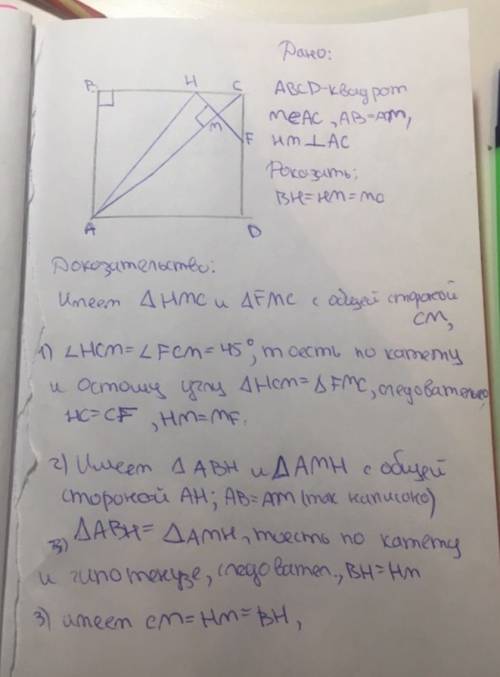 Дано:
B H C
ABCD-квадрат
M∈AC, AB=AM,
M
F
HM⊥AC
Доказать:
BH=HM=MC
A D
Доказательство:
Имеем △HMC и △FMC с общей стороной
CM,
1) ∠HCM=∠FCM=45°, тоесть по катету
и острому углу △HCM=△FMC, следовательно
HC=CF, HM=MF.
2) Имеем △ABH и △AMH с общей
стороной AH; AB=AM (так написано)
3) △ABH=△AMH, тоесть по катету
и гипотенузе, следовател., BH=HM
3) имеем CM=HM=BH,